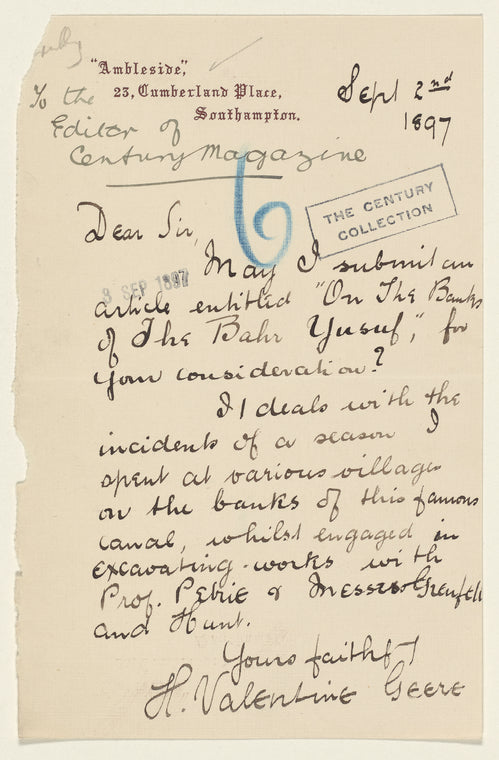 "Ambleside",
23, Cumberland Place,
Southampton.
Sept 2nd
1897
To the
Editor of
Century Magazine
6
THE CENTURY
COLLECTION
Dear Sir,
3 SEP 1897
May I submit an
article entitled "On The Banks
of The Bahr Yusuf," for
your consideration?
It deals with the
incidents of a season I
spent at various villages
on the banks of this famous
canal, whilst engaged in
excavating-works with
Prof. Petrie & Messrs Grenfell
and Hunt.
Yours faithfy
H. Valentine Geere